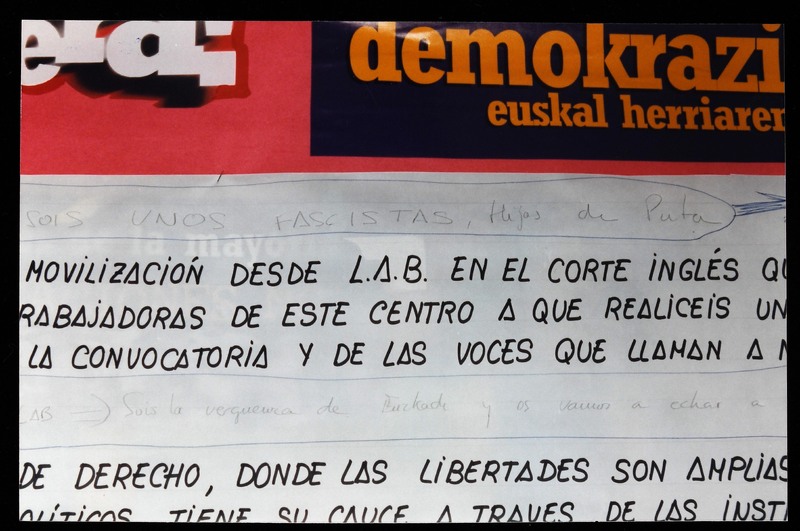 era:
demokrazi
euskal herriaren
SOIS UNOS FASCISTAS, Hijos de Puta
la mayor
MOVILIZACIÓN DESDE L.A.B. EN EL CORTE INGLÉS QU
RABAJADORAS DE ESTE CENTRO A QUE REALICEIS UN
LA CONVOCATORIA Y DE LAS VOCES QUE LLAMAN A N
LAB → Sois la verguenza de Euzkadi y os vamos a echar a
DE DERECHO, DONDE LAS LIBERTADES SON AMPLIAS
OLÍTICOS TIENE SU CAUCE A TRAVES DE LAS INSTI